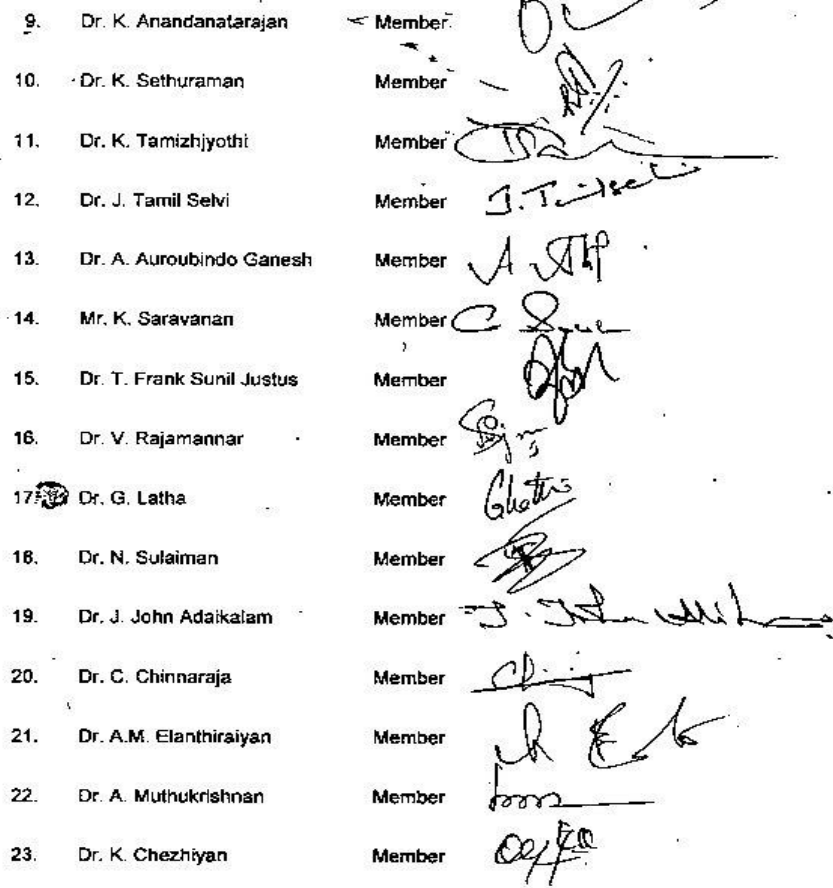 9. Dr. K. Anandanatarajan Member
10. Dr. K. Sethuraman Member
11. Dr. K. Tamizhjyothi Member
12. Dr. J. Tamil Selvi Member J. Tamilselvi
13. Dr. A. Auroubindo Ganesh Member
14. Mr. K. Saravanan Member
15. Dr. T. Frank Sunil Justus Member
16. Dr. V. Rajamannar Member
17. Dr. G. Latha Member
18. Dr. N. Sulaiman Member
19. Dr. J. John Adaikalam Member
20. Dr. C. Chinnaraja Member
21. Dr. A.M. Elanthiraiyan Member
22. Dr. A. Muthukrishnan Member
23. Dr. K. Chezhiyan Member